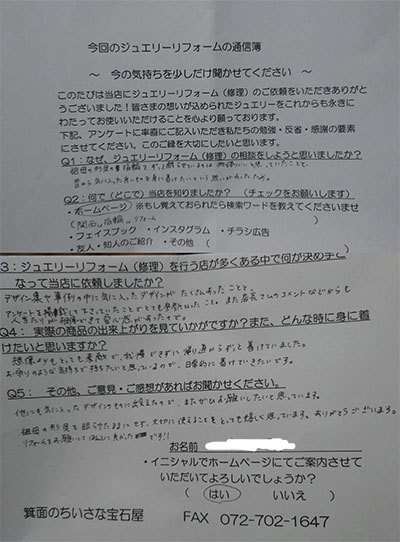 今回のジュエリーリフォームの通信簿
～ 今の気持ちを少しだけ聞かせてください ～
このたびは当店にジュエリーリフォーム（修理）のご依頼をいただきありがと
うございました！皆さまの想いが込められたジュエリーをこれからも永きに
わたってお使いいただけることを心より願っております。
下記、アンケートに率直にご記入いただき私たちの勉強・反省・感謝の要素
にさせてください。このご縁を大切にしたいと思います。
Q1：なぜ、ジュエリーリフォーム（修理）の相談をしようと思いましたか？
祖母の形見の指輪を
Q2：何で（どこで）当店を知りましたか？ （チェックをお願いします）
・ホームページ ※もし覚えておられたら検索ワードを教えてくださいませ
（ 関西 指輪 リフォーム ）
・フェイスブック ・インスタグラム ・チラシ広告
・友人・知人のご紹介 ・その他（ ）
3：ジュエリーリフォーム（修理）を行う店が多くある中で何が決め手に
なって当店に依頼しましたか？
デザイン集や事例の中に気に入ったデザインがたくさんあったことと、
アンケートを掲載して下さっていたことでとても参考になったこと。また店主さんのコメントなどからも
Q4： 実際の商品の出来上がりを見ていかがですか？また、どんな時に身に着
けたいと思いますか？
想像よりもとっても素敵で、我慢できずに帰り道からずっと着けていました。
お守りのような気持ちで持ちたいと思っているので、日常的に着けていきたいです。
Q5： その他、ご意見・ご感想があればお聞かせください。
他にも気に入ったデザインのものに出会えたので、またぜひお願いしたいと思っています。
祖母の形見を眠らせたままにせず、大切に使えることをとても嬉しく思っています。ありがとうございます。
リフォームをお願いしてほんとに良かったです!!
お名前
・イニシャルでホームページにてご案内させて
いただいてよろしいでしょうか？
（ はい いいえ ）
箕面のちいさな宝石屋 FAX 072-702-1647